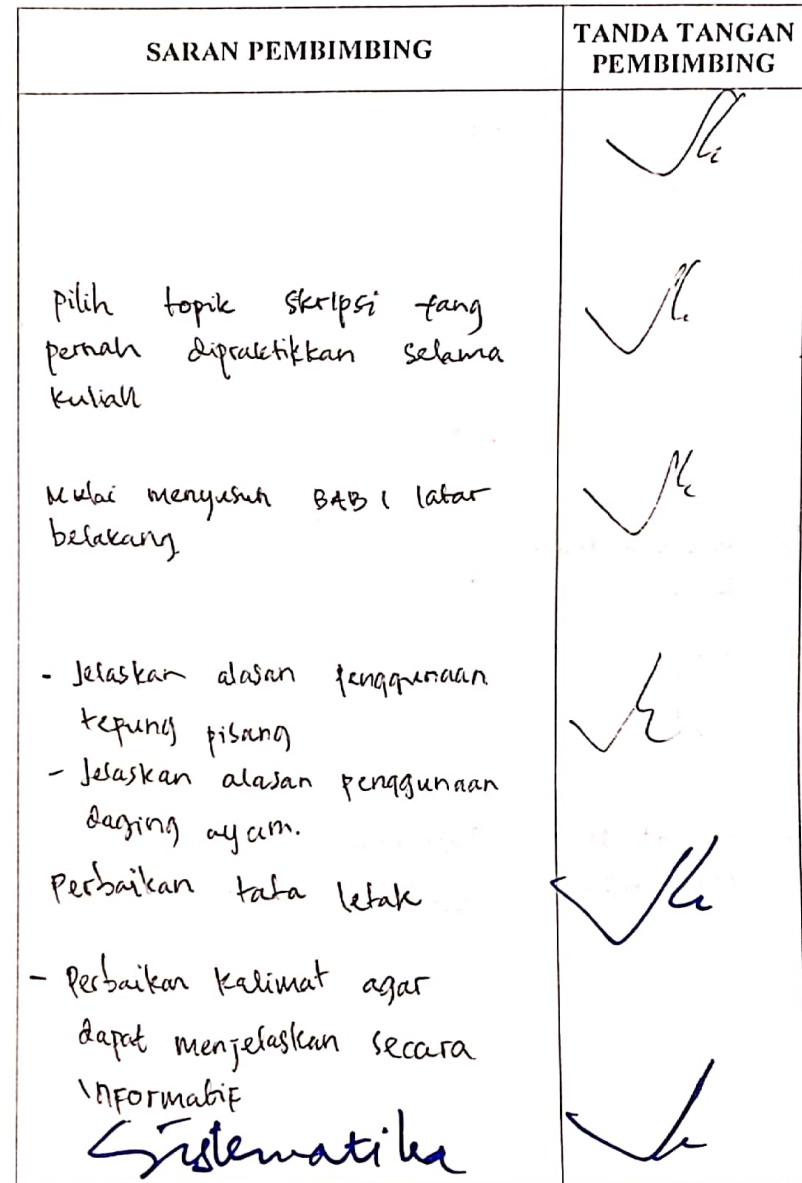 SARAN PEMBIMBING
TANDA TANGAN
PEMBIMBING
pilih topik skripsi yang
pernah dipraktikkan selama
kuliah
Mulai menyusun BAB 1 latar
belakang
- Jelaskan alasan penggunaan
tepung pisang
- Jelaskan alasan penggunaan
daging ayam.
Perbaikan tata letak
- Perbaikan kalimat agar
dapat menjelaskan secara
informatif
Sistematika